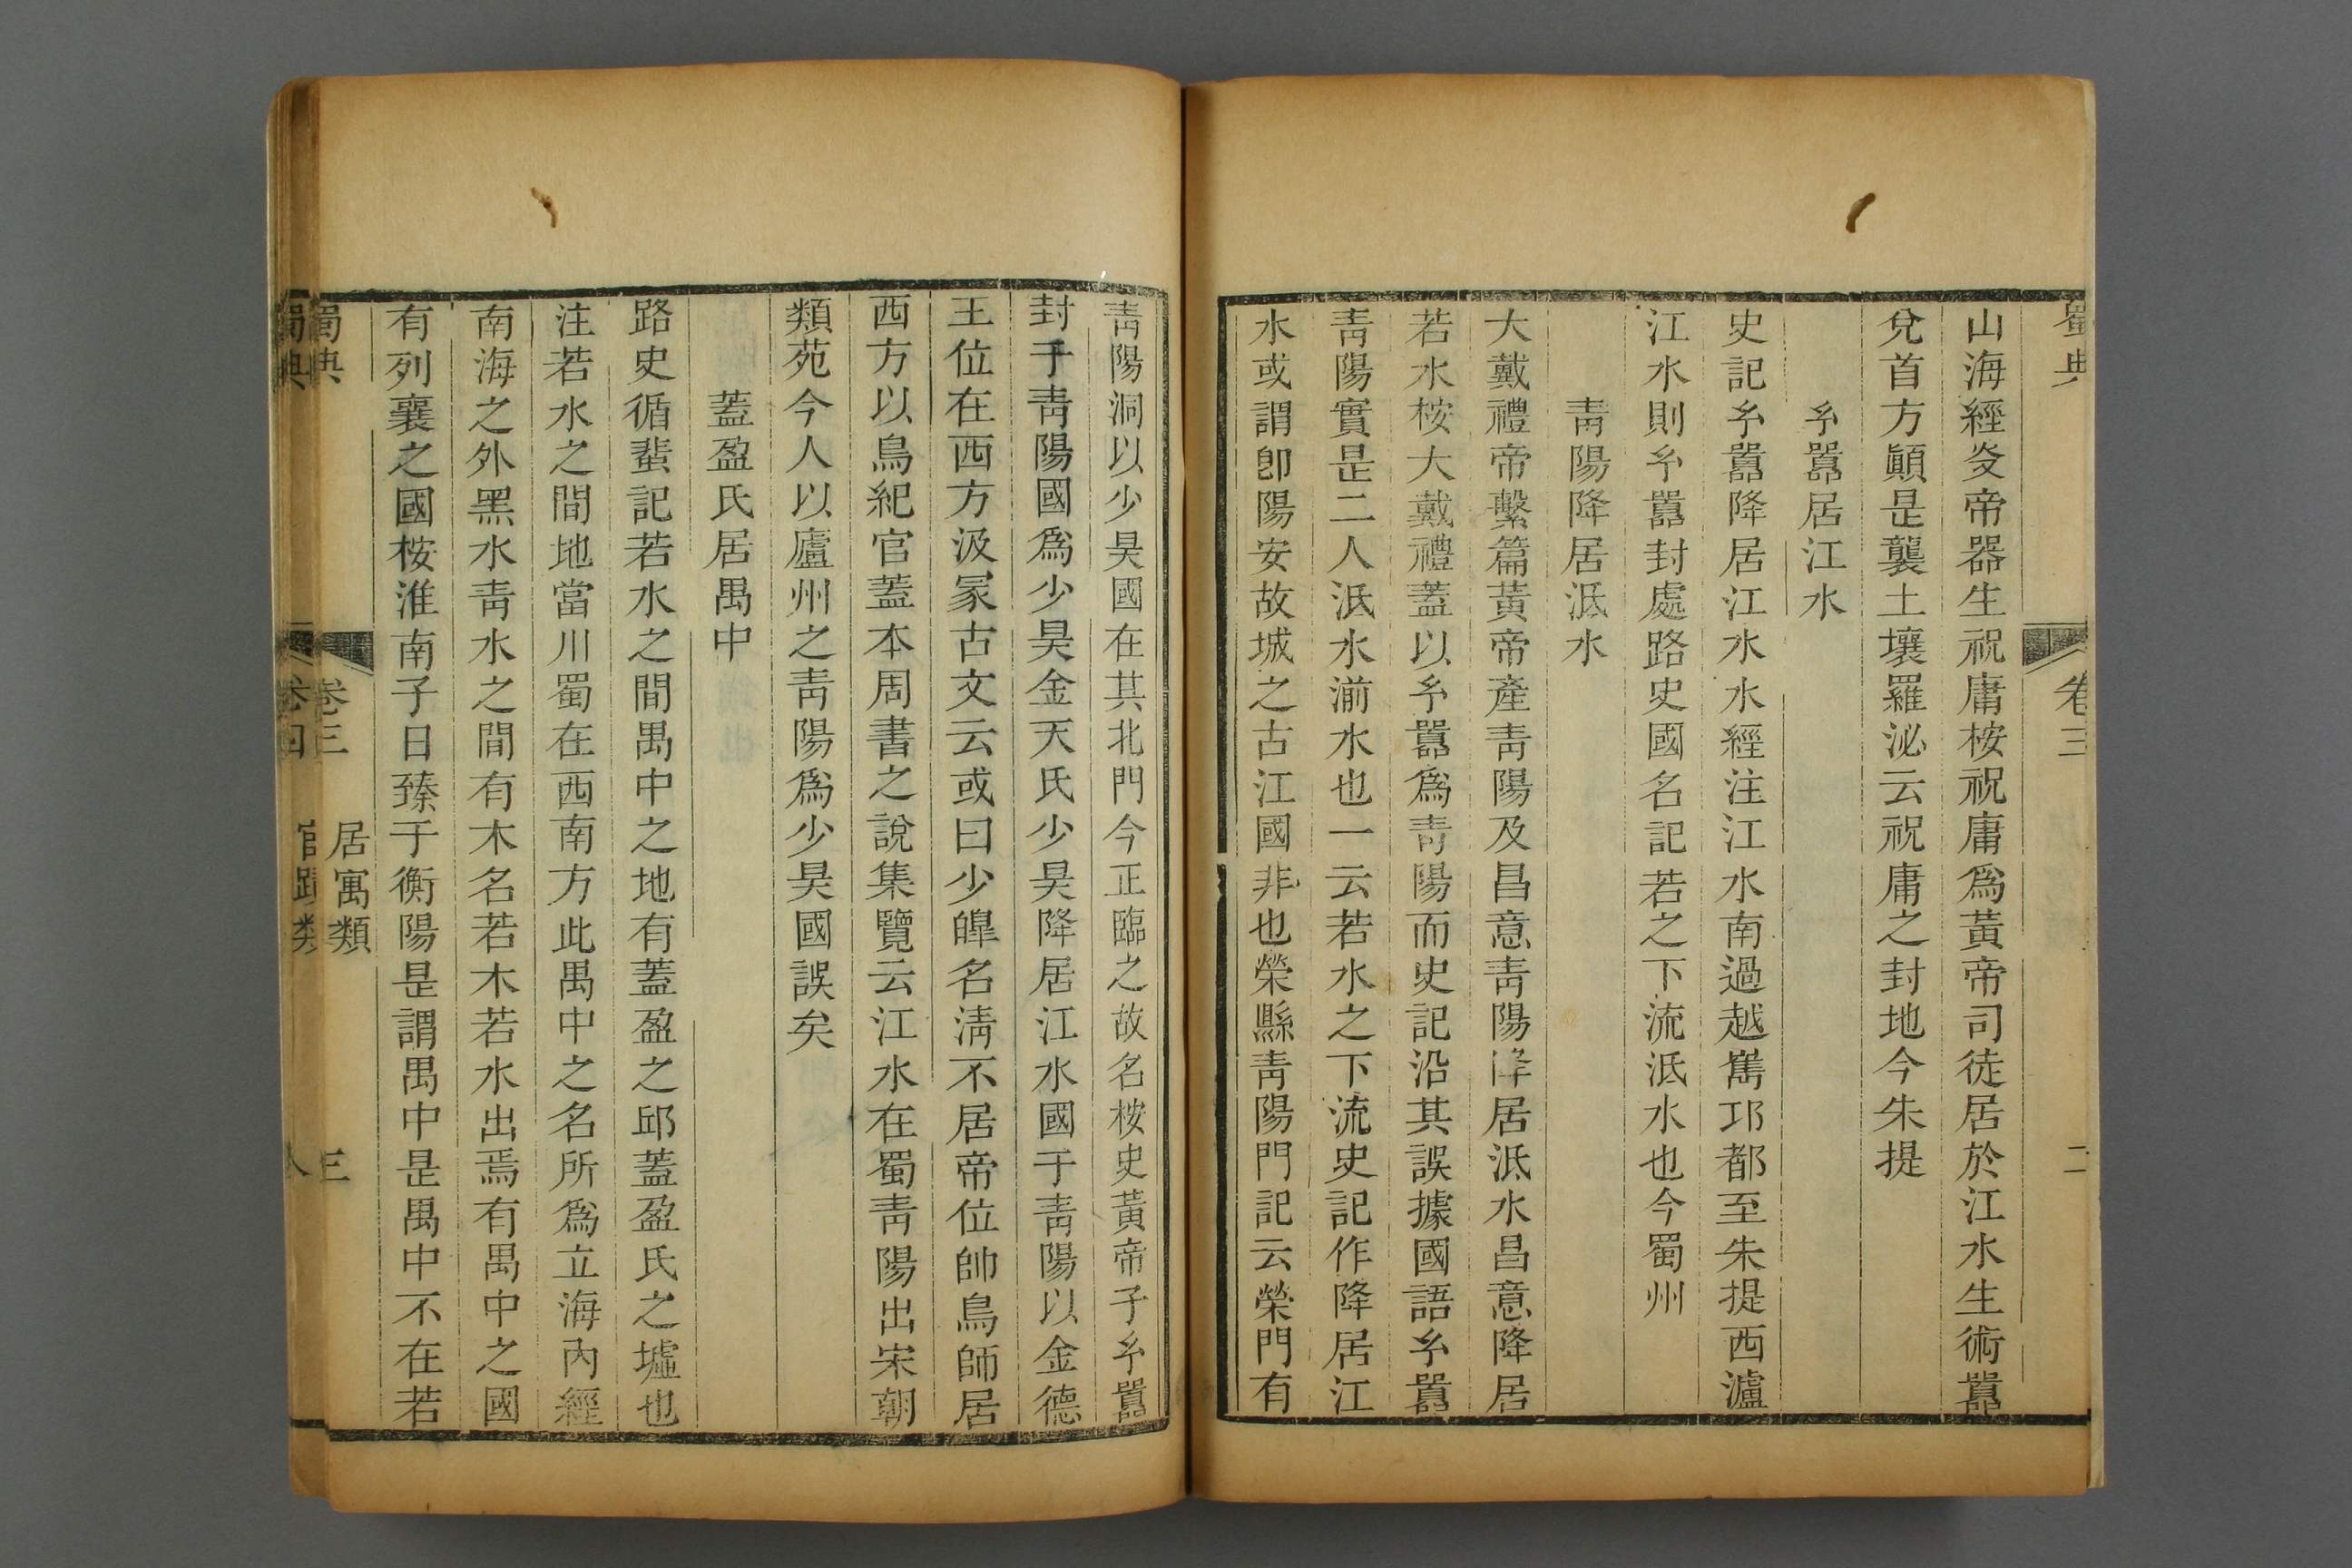 蜀典
卷三
二
山海經炎帝器生祝庸桉祝庸爲黃帝司徒居於江水生術嚻
兌首方顚是襲土壤羅泌云祝庸之封地今朱提
乡嚻居江水
史記乡嚻降居江水水經注江水南過越巂邛都至朱提西瀘
江水則乡嚻封處路史國名記若之下流泜水也今蜀州
靑陽降居泜水
大戴禮帝繫篇黃帝產靑陽及昌意靑陽降居泜水昌意降居
若水桉大戴禮蓋以乡嚻爲靑陽而史記沿其誤據國語乡嚻
靑陽實是二人泜水湔水也一云若水之下流史記作降居江
水或謂卽陽安故城之古江國非也榮縣靑陽門記云榮門有
靑陽洞以少昊國在其北門今正臨之故名桉史黃帝子乡嚻
封于靑陽國爲少昊金天氏少昊降居江水國于靑陽以金德
王位在西方汲冡古文云或曰少皡名淸不居帝位帥鳥師居
西方以鳥紀官蓋本周書之說集覽云江水在蜀靑陽出宋朝
類苑今人以廬州之靑陽爲少昊國誤矣
蓋盈氏居禺中
路史循蜚記若水之間禺中之地有蓋盈之邱蓋盈氏之墟也
注若水之間地當川蜀在西南方此禺中之名所爲立海內經
南海之外黑水靑水之間有木名若木若水出焉有禺中之國
有列襄之國桉淮南子日臻于衡陽是謂禺中是禺中不在若
蜀典
卷三
居寓類
三
蜀典
卷四
官蹟類